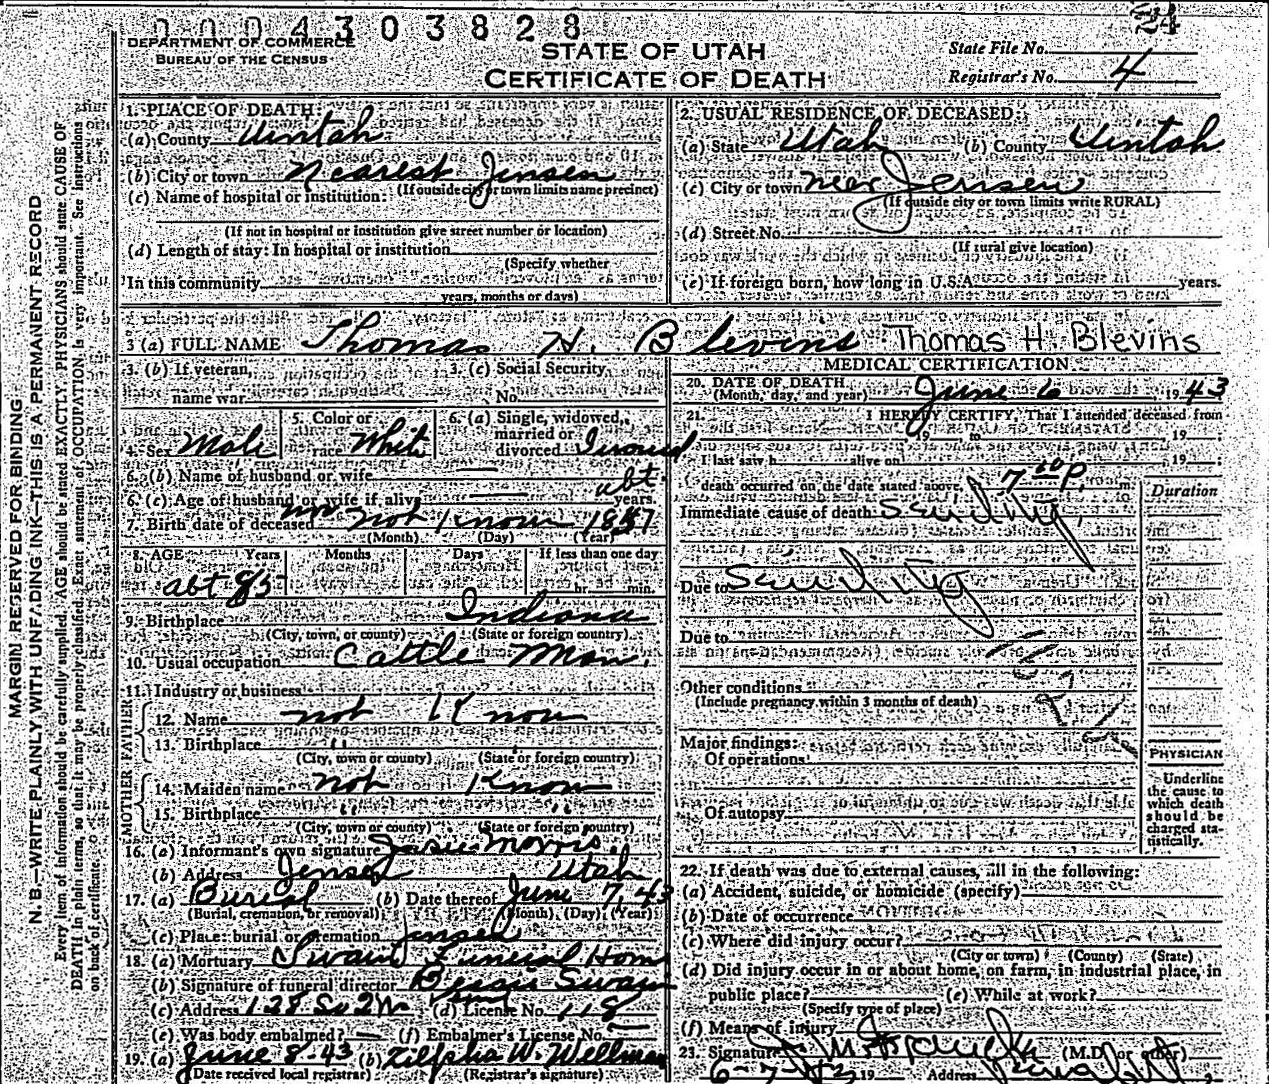 0004303828
24
DEPARTMENT OF COMMERCE
BUREAU OF THE CENSUS
STATE OF UTAH
CERTIFICATE OF DEATH
State File No.
Registrar's No. 4
MARGIN RESERVED FOR BINDING
N. B.—WRITE PLAINLY WITH UNFADING INK—THIS IS A PERMANENT RECORD
Every item of information should be carefully supplied. AGE should be stated EXACTLY. PHYSICIANS should state CAUSE OF
DEATH in plain terms, so that it may be properly classified. Exact statement of OCCUPATION is very important. See instructions
on back of certificate.
1. PLACE OF DEATH:
(a) County Uintah
(b) City or town Nearest Jensen
(If outside city or town limits name precinct)
(c) Name of hospital or institution:
(If not in hospital or institution give street number or location)
(d) Length of stay: In hospital or institution
(Specify whether
In this community
years, months or days)
2. USUAL RESIDENCE OF DECEASED:
(a) State Utah (b) County Uintah
(c) City or town near Jensen
(If outside city or town limits write RURAL)
(d) Street No.
(If rural give location)
(e) If foreign born, how long in U.S.A. years.
3 (a) FULL NAME Thomas H. Blevins Thomas H. Blevins
3. (b) If veteran, 3. (c) Social Security
name war No.
4. Sex Male 5. Color or race White 6. (a) Single, widowed, married or divorced
6. (b) Name of husband or wife
6. (c) Age of husband or wife if alive years.
7. Birth date of deceased not Know abt. 1857
(Month) (Day) (Year)
8. AGE Years Months Days If less than one day
abt 85 hr. min.
9. Birthplace Indiana
(City, town, or county) (State or foreign country)
10. Usual occupation Cattle Man.
11. Industry or business
FATHER
12. Name not Know
13. Birthplace "
(City, town or county) (State or foreign country)
MOTHER
14. Maiden name not Know
15. Birthplace " "
(City, town or county) (State or foreign country)
16. (a) Informant's own signature Josie Morris.
(b) Address Jensen Utah
17. (a) Burial (b) Date thereof June 7, 43
(Burial, cremation, or removal) (Month) (Day) (Year)
(c) Place: burial or cremation Jensen
18. (a) Mortuary Swain Funeral Home
(b) Signature of funeral director Bessie Swain
(c) Address 128 So 2 W (d) License No. 118
(e) Was body embalmed? — (f) Embalmer's License No. —
19. (a) June 8-43 (b) Zilpha W. Wellman
(Date received local registrar) (Registrar's signature)
MEDICAL CERTIFICATION
20. DATE OF DEATH June 6 1943
(Month, day, and year)
21. I HEREBY CERTIFY, That I attended deceased from
19 to 19
I last saw h alive on 19
death occurred on the date stated above, 7 10 P. m.
Duration
Immediate cause of death Senility
Due to Senility
Due to
Other conditions
(Include pregnancy within 3 months of death)
Major findings:
Of operations
Of autopsy
PHYSICIAN
Underline
the cause to
which death
should be
charged sta-
tistically.
22. If death was due to external causes, fill in the following:
(a) Accident, suicide, or homicide (specify)
(b) Date of occurrence
(c) Where did injury occur?
(City or town) (County) (State)
(d) Did injury occur in or about home, on farm, in industrial place, in
public place? (e) While at work?
(Specify type of place)
(f) Means of injury
23. Signature (M.D. or other)
6-7-43 19 Address